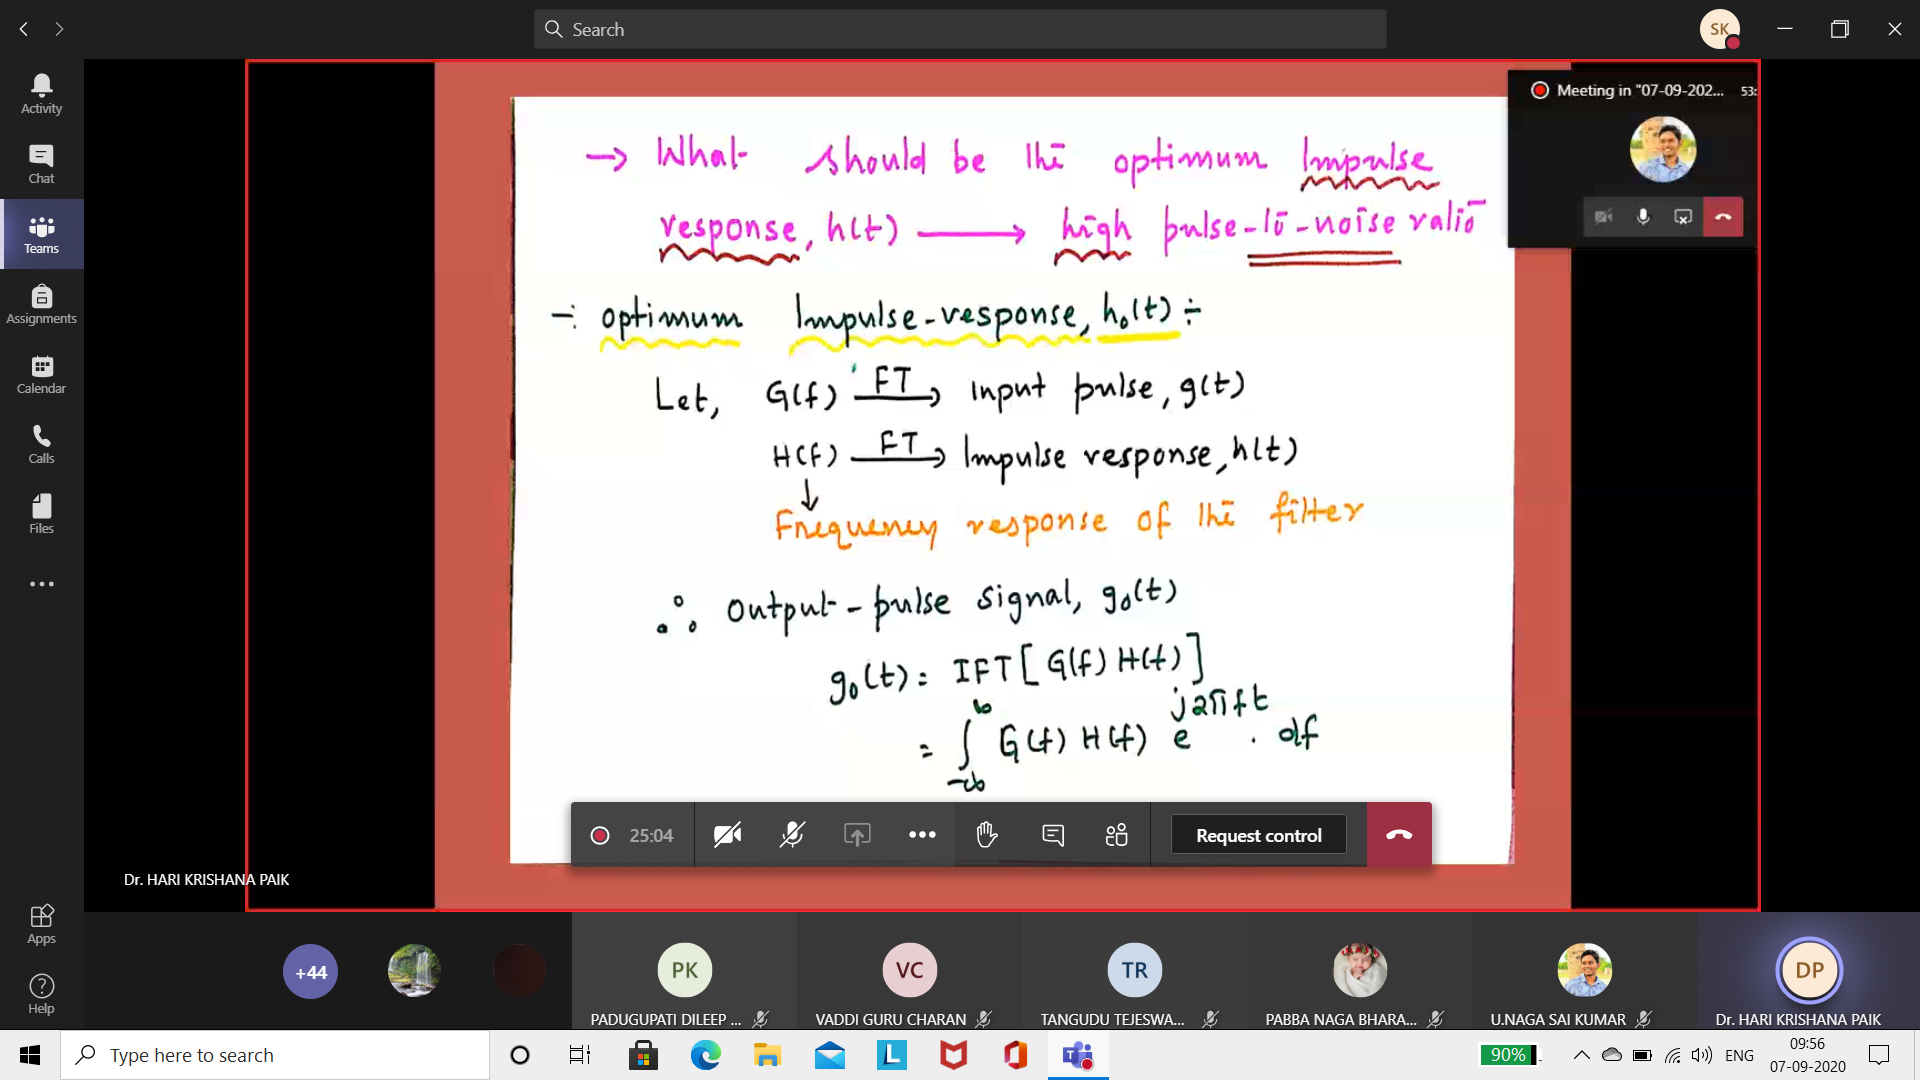 Search
SK
Activity
Chat
Teams
Assignments
Calendar
Calls
Files
Apps
Help
Meeting in "07-09-202... 53:
→ What should be the optimum Impulse
response, h(t) → high pulse-to-noise ratio
-: optimum Impulse-response, h₀(t) ÷
Let, G(f) FT→ Input pulse, g(t)
H(f) FT→ Impulse response, h(t)
↓
Frequency response of the filter
∴ output-pulse signal, g₀(t)
g₀(t) = IFT[G(f) H(f)]
= ∫_{-∞}^{∞} G(f) H(f) e^{j2πft} . df
25:04
Request control
Dr. HARI KRISHANA PAIK
+44
PK
VC
TR
DP
PADUGUPATI DILEEP ...
VADDI GURU CHARAN
TANGUDU TEJESWA...
PABBA NAGA BHARA...
U.NAGA SAI KUMAR
Dr. HARI KRISHANA PAIK
Type here to search
L
90%
ENG
09:56
07-09-2020